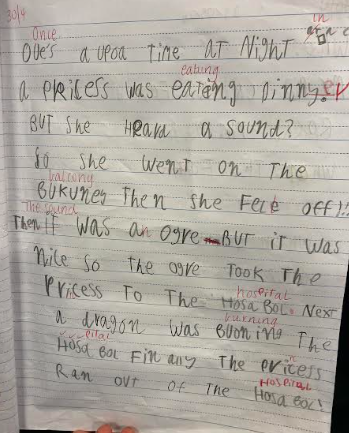 30/4
Once in
One's a upon Time AT Night at a
eating
a pricess was eateing Dinny.er
BUT She HeaRd a sound?
So she went on The
balcony
BUKUNey Then she Fele off!!
The sound
Then IT was an Ogre BUT it was
Nice so the ogre Took The
hospital
Pricess To The Hosa BOL. Next
burning
a dragon was Buoning The
pital
Hosa BOL Fin any The pricess
Hospital
Ran out of The Hosa BOL!